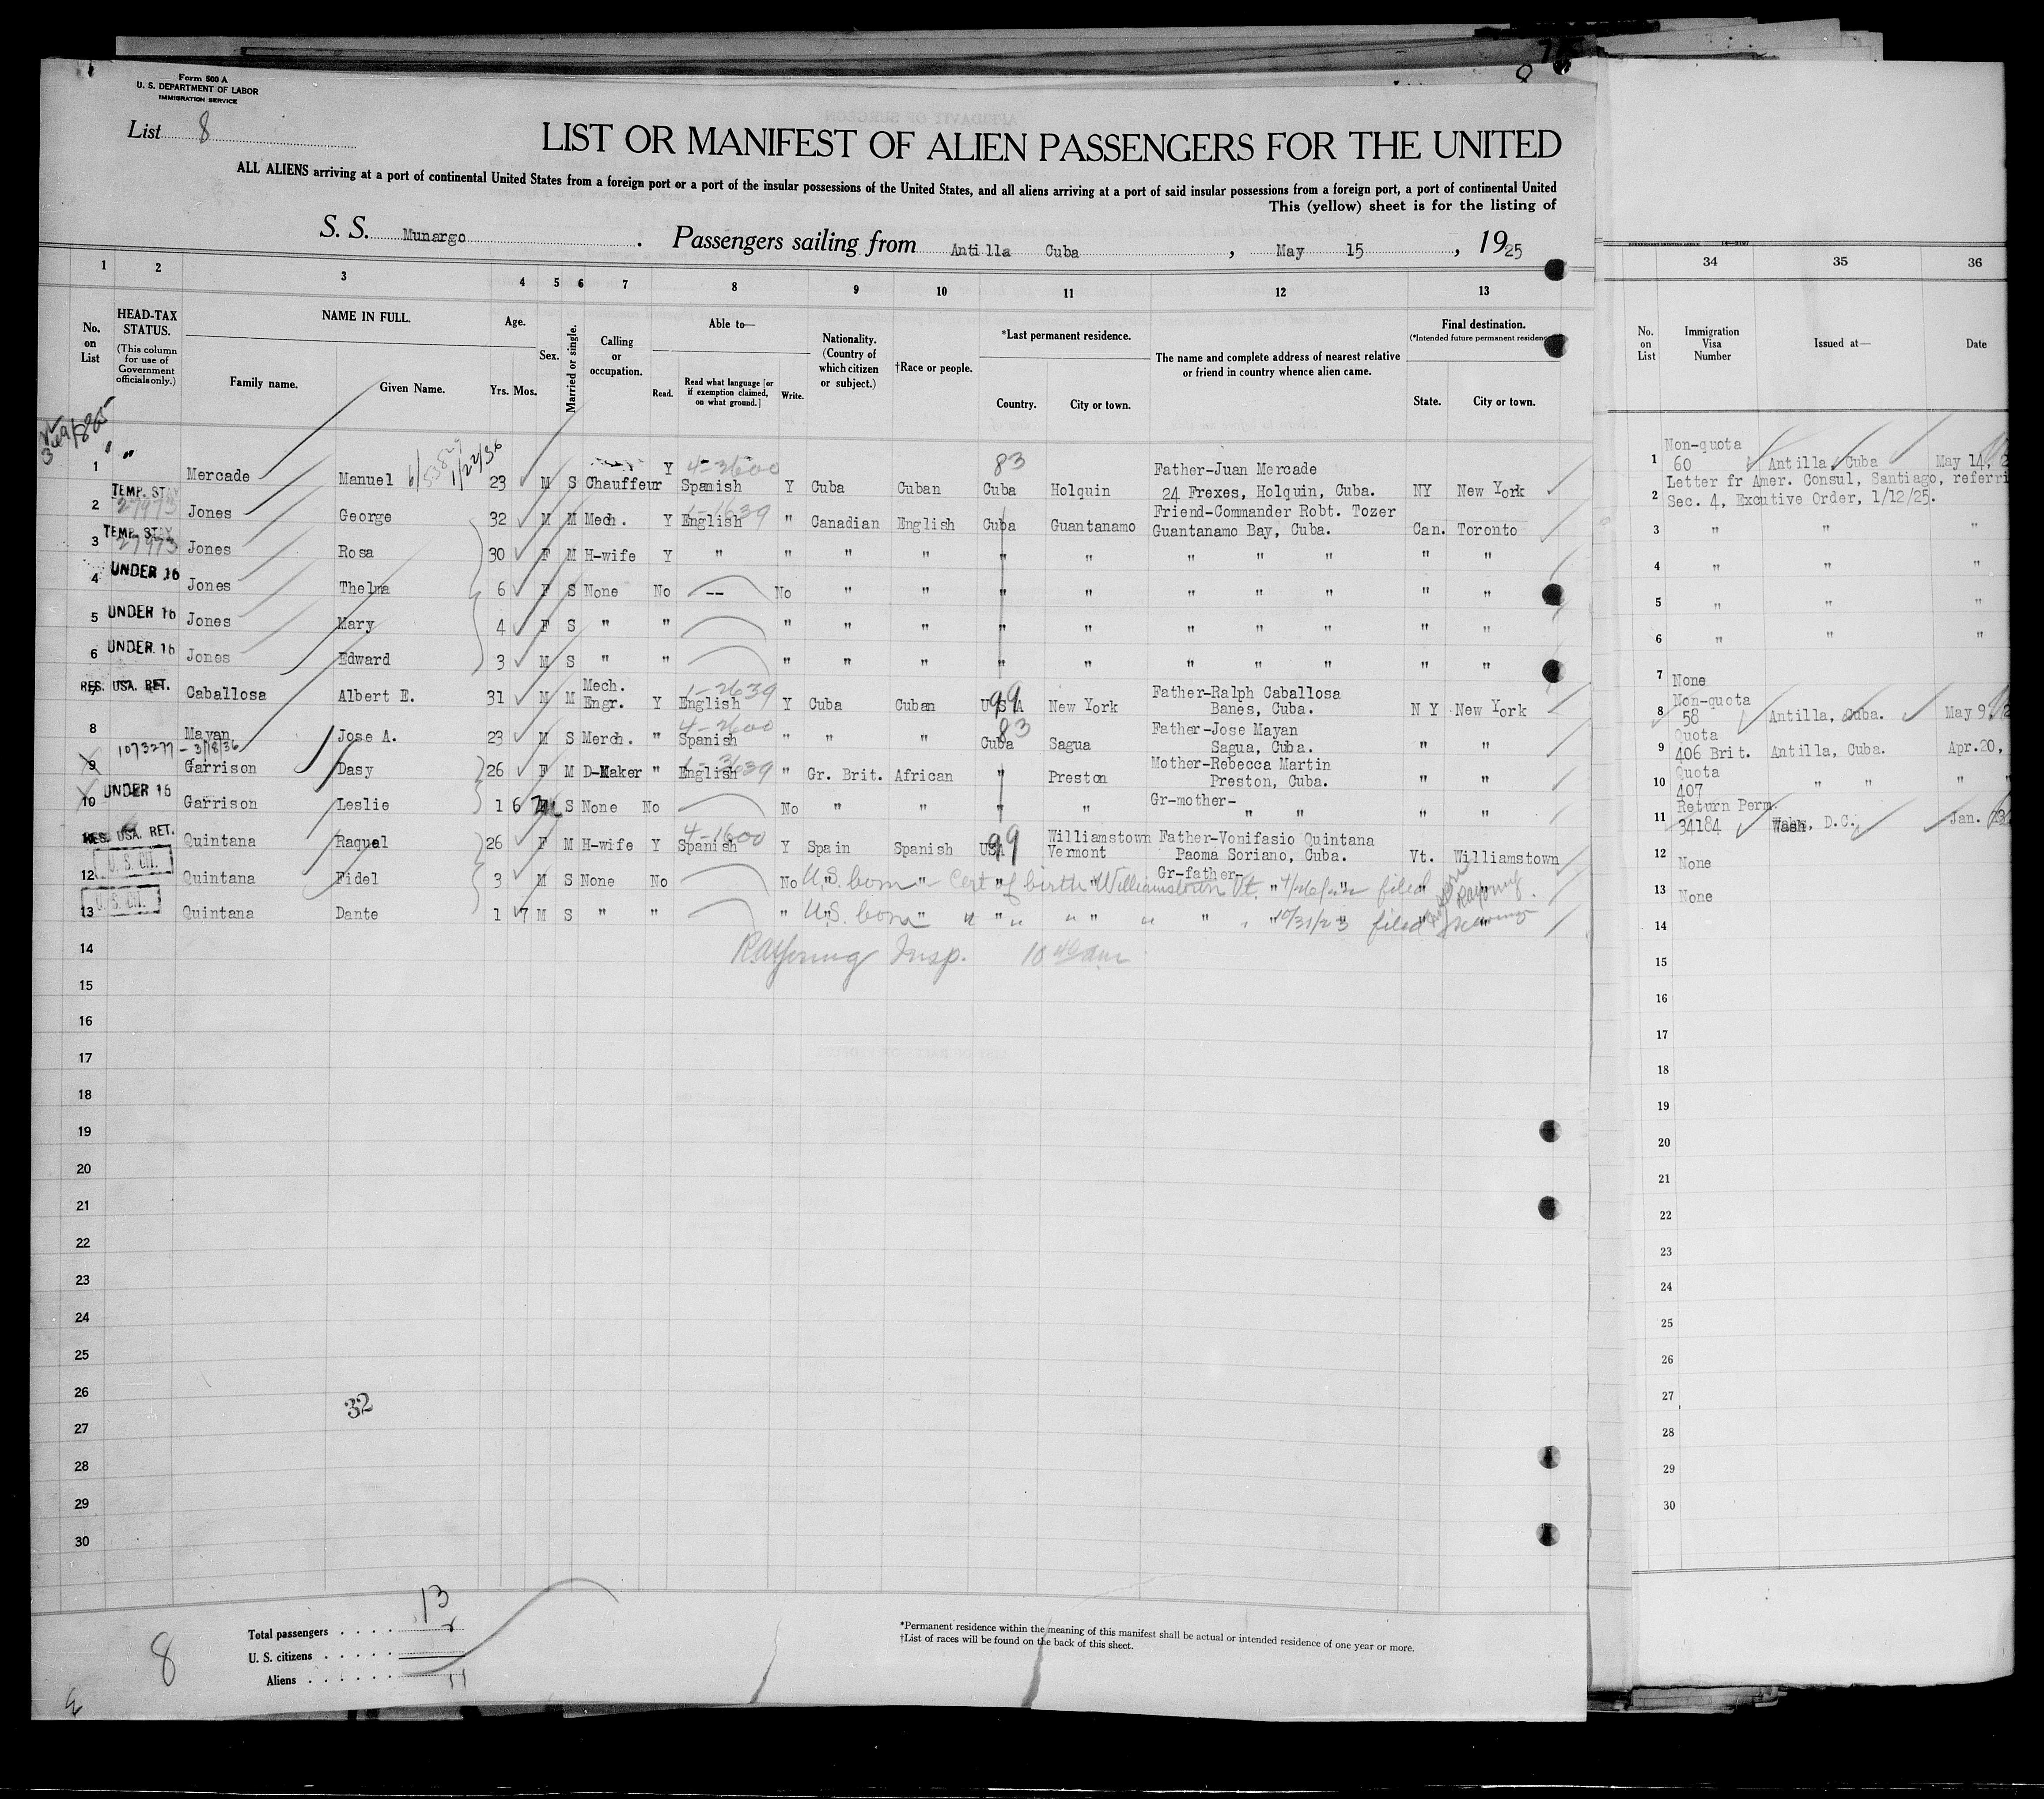 Form 500 A
U. S. DEPARTMENT OF LABOR
IMMIGRATION SERVICE
List 8
LIST OR MANIFEST OF ALIEN PASSENGERS FOR THE UNITED
ALL ALIENS arriving at a port of continental United States from a foreign port or a port of the insular possessions of the United States, and all aliens arriving at a port of said insular possessions from a foreign port, a port of continental United
This (yellow) sheet is for the listing of
S. S. Munargo. Passengers sailing from Antilla Cuba, May 15, 1925
1 2 3 4 5 6 7 8 9 10 11 12 13 34 35 36
No. on List
HEAD-TAX STATUS. (This column for use of Government officials only.)
NAME IN FULL. Family name. Given Name.
Age. Yrs. Mos.
Sex.
Married or single.
Calling or occupation.
Able to— Read. Read what language [or if exemption claimed, on what ground.] Write.
Nationality. (Country of which citizen or subject.)
†Race or people.
*Last permanent residence. Country. City or town.
The name and complete address of nearest relative or friend in country whence alien came.
Final destination. (*Intended future permanent residence) State. City or town.
No. on List
Immigration Visa Number
Issued at—
Date
1 Mercade Manuel 1/22/36 23 M S Chauffeur Y 4-3600 Spanish Y Cuba Cuban 83 Cuba Holquin Father-Juan Mercade 24 Frexes, Holquin, Cuba. NY New York
2 TEMP. STAY 27973 Jones George 32 M M Mech. Y English " Canadian English Cuba Guantanamo Friend-Commander Robt. Tozer Guantanamo Bay, Cuba. Can. Toronto
3 TEMP. STAY 27973 Jones Rosa 30 F M H-wife Y " " " " " " " " " " "
4 UNDER 16 Jones Thelma 6 F S None No -- No " " " " " " " " "
5 UNDER 16 Jones Mary 4 F S " " " " " " " " " " " "
6 UNDER 16 Jones Edward 3 M S " " " " " " " " " " " "
7 RES. USA. RET. Caballosa Albert E. 31 M M Mech. Engr. Y English Y Cuba Cuban 99 U S A New York Father-Ralph Caballosa Banes, Cuba. N Y New York
8 Mayan Jose A. 23 M S Merch. " 4-2600 Spanish " " " 83 Cuba Sagua Father-Jose Mayan Sagua, Cuba. " "
1073277 - 3/18/36
9 Garrison Dasy 26 F M D-Maker " English " Gr. Brit. African " Preston Mother-Rebecca Martin Preston, Cuba. " "
10 UNDER 16 Garrison Leslie 1 6 S None No No " " " " Gr-mother- " " " "
RES. USA. RET. Quintana Raquel 26 F M H-wife Y 4-1600 Spanish Y Spain Spanish 99 USA Williamstown Vermont Father-Vonifasio Quintana Paoma Soriano, Cuba. Vt. Williamstown
12 U. S. CIT. Quintana Fidel 3 M S None No No U.S. born - Cert of birth Williamstown Vt. Gr-father- filed
13 U. S. CIT. Quintana Dante 1 7 M S " " " U.S. born " " " " " " 10/31/23 filed
RA Young Insp. 10 40 am
14
15
16
17
18
19
20
21
22
23
24
25
26
27
28
29
30
32
1 Non-quota 60 Antilla, Cuba May 14,
2 Letter fr Amer. Consul, Santiago, referri
Sec. 4, Excutive Order, 1/12/25.
3 " " "
4 " " "
5 " " "
6 " " "
7 None
8 Non-quota 58 Antilla, Cuba. May 9,
9 Quota 406 Brit. Antilla, Cuba. Apr.20,
10 Quota 407 " " "
11 Return Perm. 34184 Wash, D.C. Jan.
12 None
13 None
14
15
16
17
18
19
20
21
22
23
24
25
26
27
28
29
30
8
Total passengers 13
U. S. citizens
Aliens 11
*Permanent residence within the meaning of this manifest shall be actual or intended residence of one year or more.
†List of races will be found on the back of this sheet.